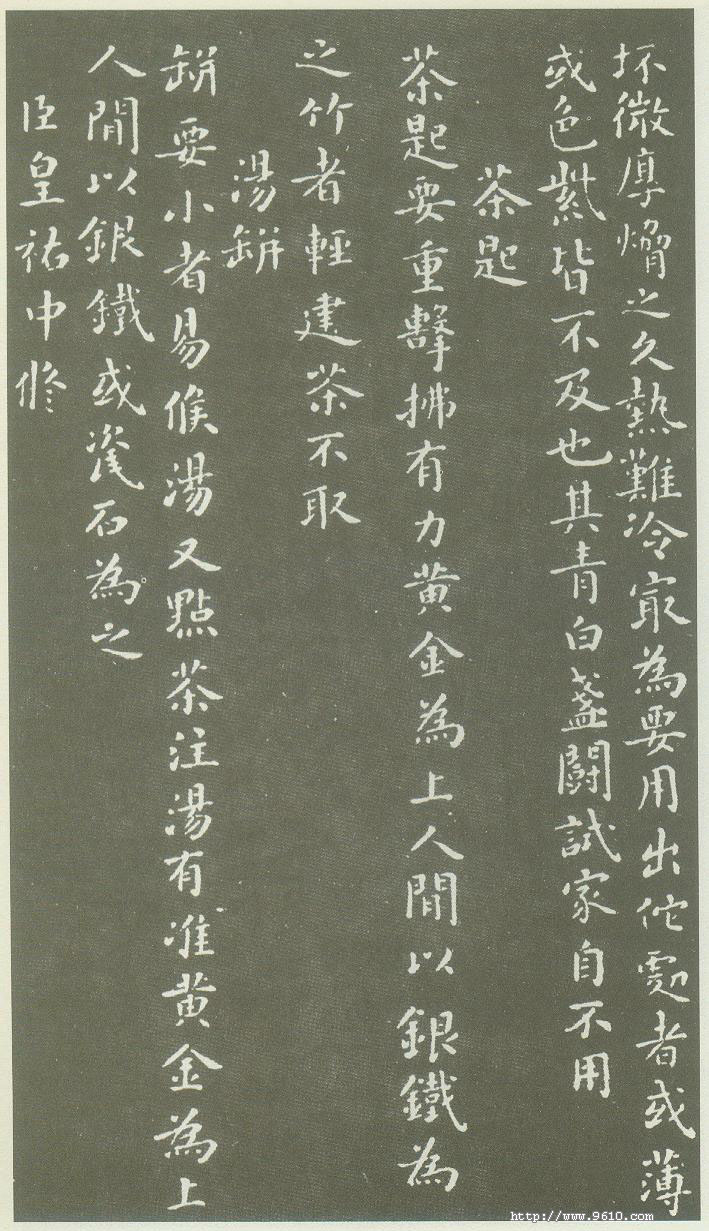 坯微厚熁之久熱難冷㝡為要用出佗䖏者或薄
或色紫皆不及也其青白盞鬪試家自不用
茶匙
茶匙要重擊拂有力黄金為上人間以銀鐵為
之竹者輕建茶不取
湯缾
缾要小者易候湯又點茶注湯有准黄金為上
人間以銀鐵或瓷石為之
臣皇祐中修
http://www.9610.com